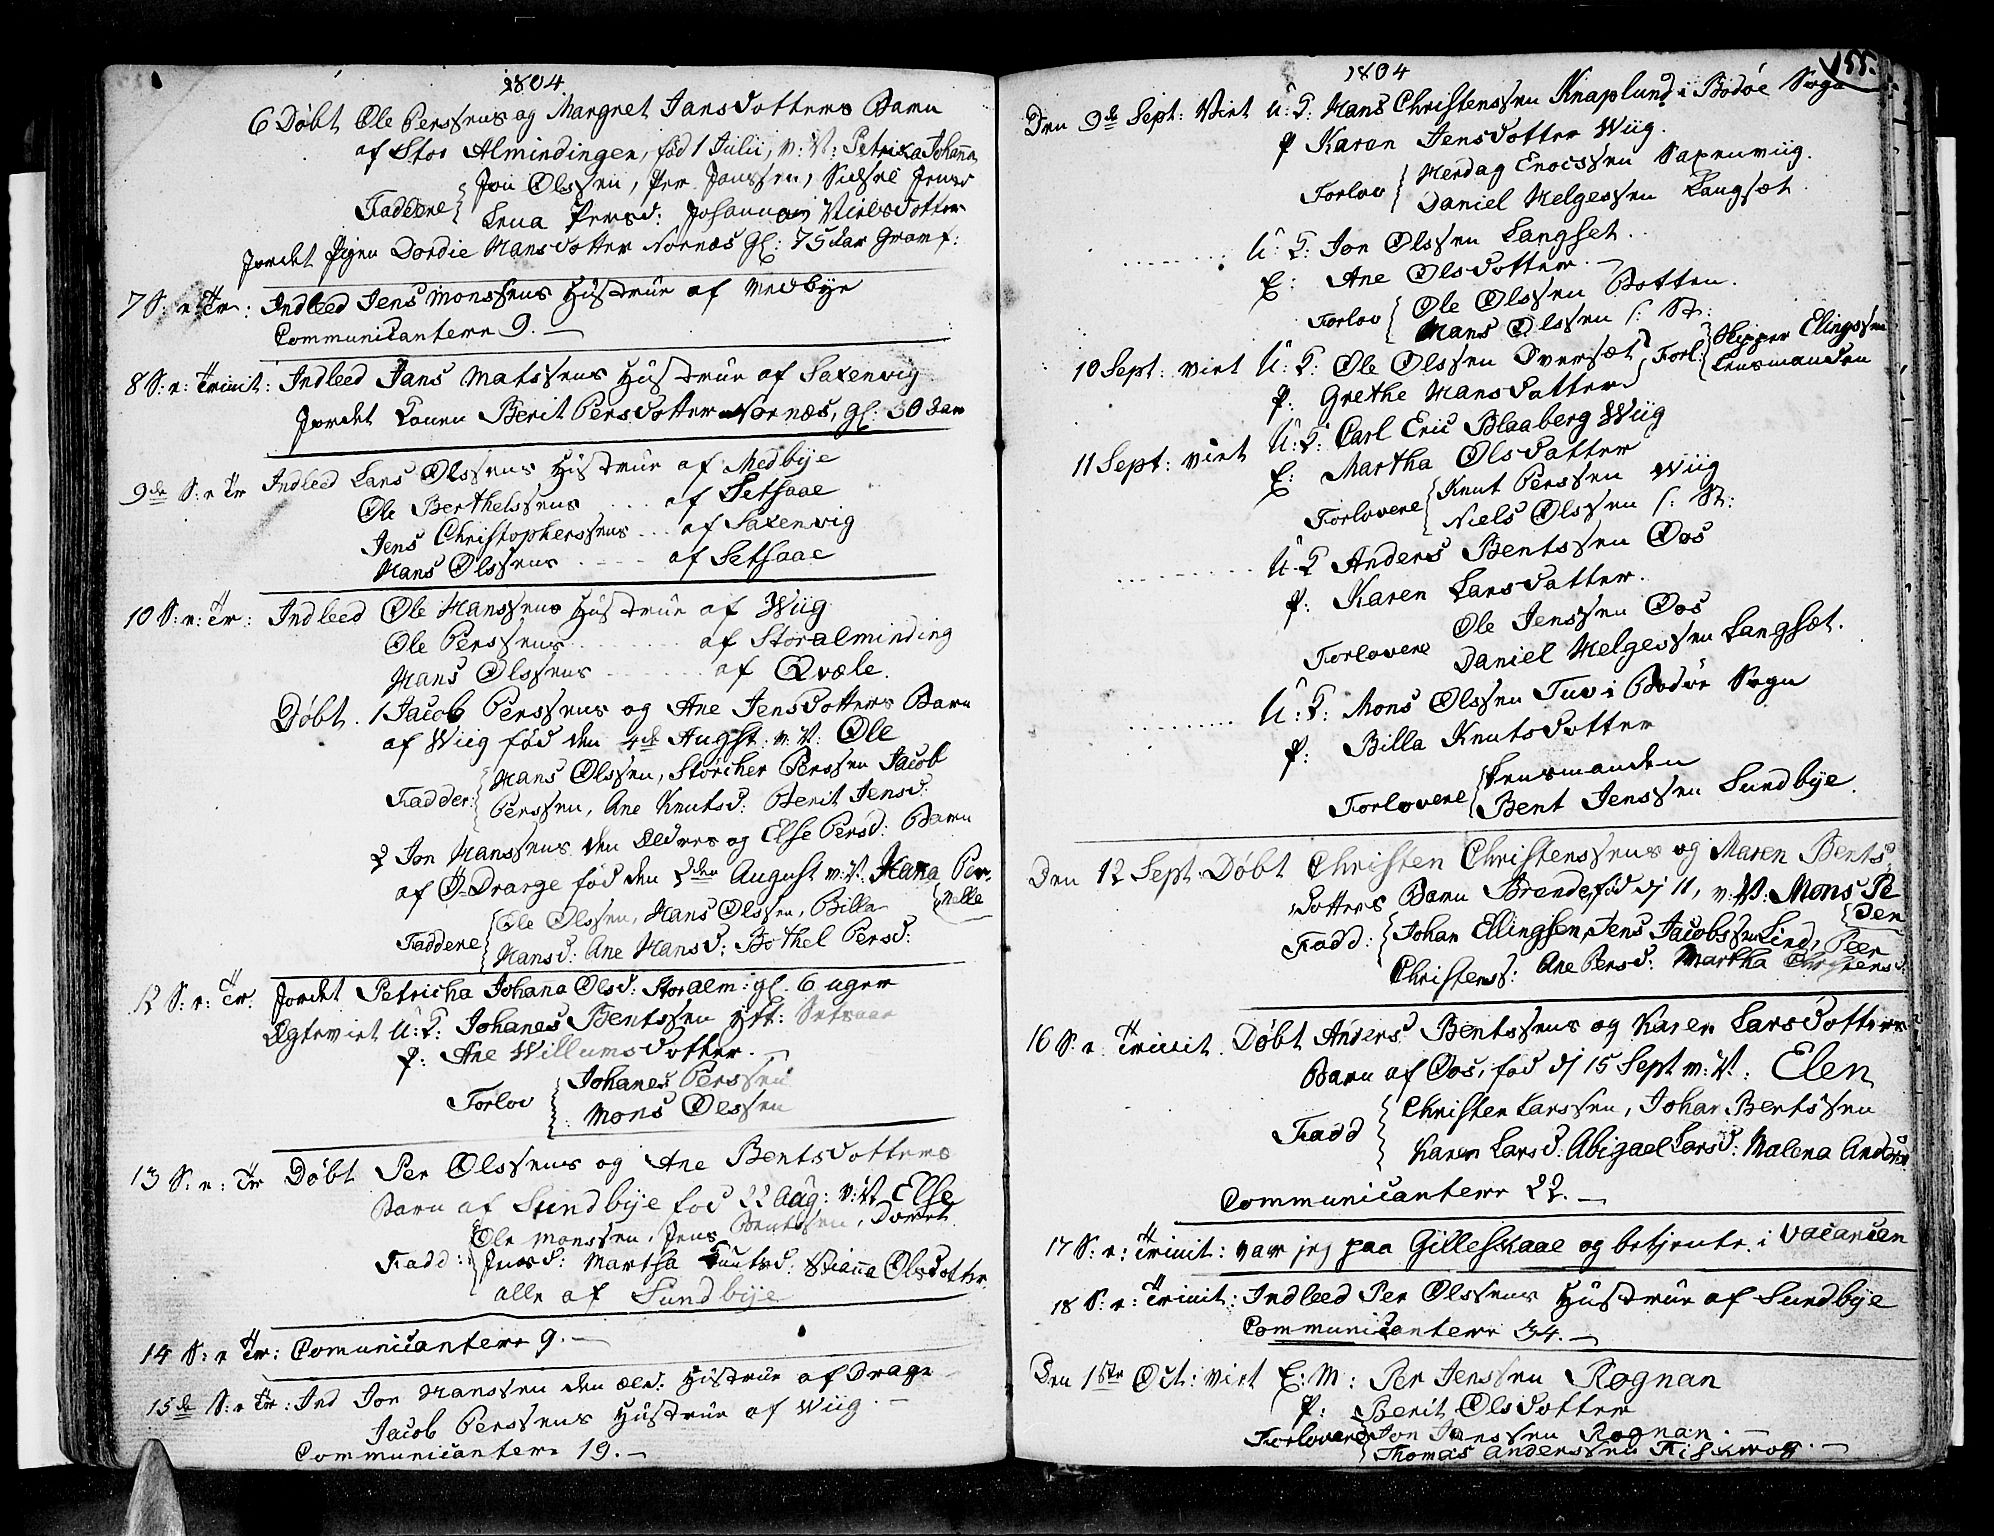 1804
6 Døbt Ole Perssens og Margret Jans Dotters Barn
af Stor Almindingen, fød 1 Julii, n: V: Petrika Johanna
Faddere Jon Olssen, Per Janssen, Sidsel Jensd
Lena Persd: Johanna Nielsdotter
Jordet Pigen Dordie Hansdotter Nornæs gl: 75 Aar Gram f:
7 S: e: Tr: Indleed Jens Monssens Hustrue af Medbye
Communicantere 9. —
8 S: e: Trinit: Indleed Jans Matssens Hustrue af Saxenvig
Jordet Konen Berit Persdotter Nornæs, gl: 30 Aar
9de S: e Tr Indleed Lars Olssens Hustrue af Medbye
Ole Berthelssens .... af Setsaae
Jens Christopherssens ... af Saxenvig
Hans Olssens ..... af Setsaae
10 S: e: Tr: Indleed Ole Hanssens Hustrue af Wiig
Ole Perssens ........ af Storalminding
Hans Olssens ........ af Qvæle.
Døbt. 1 Jacob Perssens og Ane Jensdotters Barn
af Wiig fød den 4de Augst: n: V: Ole
Fadder: Hans Olssen, Størcher Perssen Jacob
Perssen, Ane Knutsd: Berit Jensd:
2 Jon Hanssens den Ældres og Else Persd: Barn
af Drage fød den August n: V: Hana Per-
nelle
Faddere Ole Olssen, Hans Olssen, Billa
Hansd: Ane Hansd: Bothel Persd:
12 S: e: Tr: Jordet Petricha Johana Olsd: Storalm: gl. 6 uger
Ægteviet U: K: Johanes Bentssen Setsaae
P: Ane Willumsdotter. —
Forlov Johanes Perssen
Mons Olssen
13 S: e: Tr Døbt Per Olssens og Ane Bentsdotters
Barn af Sundbye fød 22 Aug: n: V: Else
Ole Monssen, Jens Bentssen, Dorret
Fadd: Jensd: Martha Knutsd: Olsdotter.
alle af Sundbye
14 S: e Tr: Comunicantere 9. —
15de S: e Tr: Ind Jon Hanssen den æld: Hustrue af Drage
Jacob Perssens Hustrue af Wiig. —
Communicantere 19. —
1804
155.
Den 9de Sept: Viet U: K: Hans Christenssen Knaplund i Bodøe Sogn
P Karen Jensdotter Wiig.
Forlov Herdag Enocssen Saxenviig.
Daniel Helgessen Langsæt.
......... U: K: Jon Olssen Langset.
E: Ane Olsdotter. —
Forlov Ole Olssen Botten.
Hans Olssen
10 Sept: viet U: K: Ole Olssen Oversæt Forl: Skipper Elingssen
P. Grethe Hansdatter Lensmanden
11 Sept: viet U: K: Carl Eric Blaaberg Wiig
E: Martha Olsdatter
Forlovere Knut Perssen Wiig
Niels Olssen
......... U: K Anders Bentssen Oos
P: Karen Larsdatter.
Ole Jenssen Oos
Forlovere Daniel Helgessen Langsæt.
......... U: K: Mons Olssen Tuv i Bodøe Sogn
P: Billa Knutsdotter
Lensmanden
Forlovere Bent Jenssen Sundbye.
Den 12 Sept: Døbt Christen Christenssens og Maren Bents
dotters Barn fød dj 11, n: V: Mons Pe
der
Fadd: Johan Ellingsen, Jens Jacobssen Lind, Peer
Christens: Ane Persd: Martha Christensd:
16 S: e: Trinit. Døbt Anders Bentssens og Karen Larsdotters
Barn af Oos, fød dj 15 Sept n: V: Elen
Christen Larssen, Johan Bentssen
Fadd Karen Larsd: Abigael Larsd: Malena Andersd
Communicantere 22. —
17 S: e: Trinit: var jeg paa Gilleskaae og betjente i Vacancen
18 S: e: Trinit: Indleed Per Olssens Hustrue af Sundbye
Communicantere 34. —
Den 1ste Oct: viet E: M: Per Jenssen Rognan
P: Berit Olsdotter
Forlovere Jon Janssen Rognan. —
Thomas Anderssen —